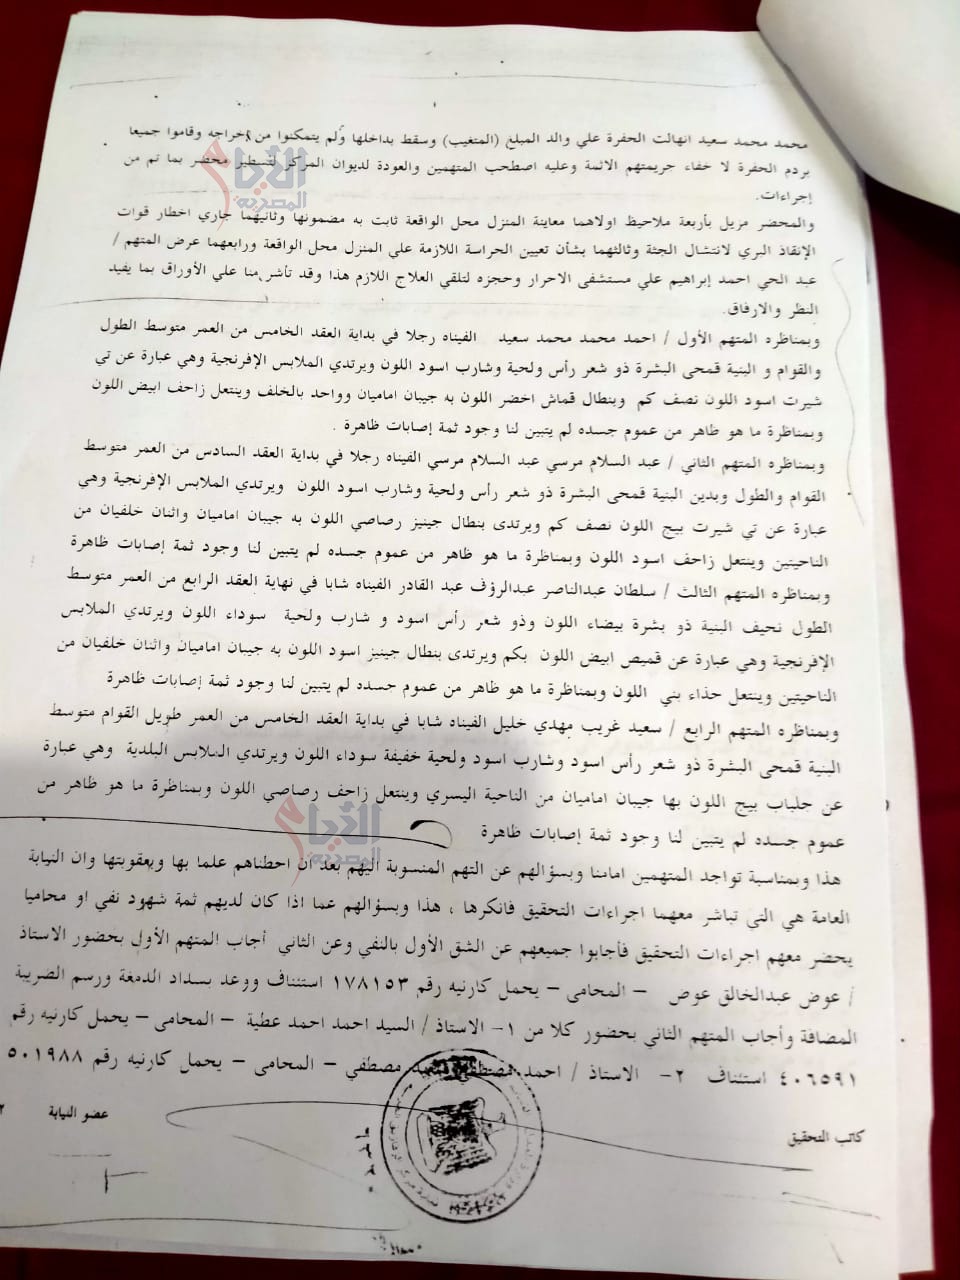 محمد محمد سعيد انهالت الحفرة علي والد المبلغ (المتغيب) وسقط بداخلها ولم يتمكنوا من اخراجه وقاموا جميعا
بردم الحفرة لا خفاء جريمتهم الاثمة وعليه اصطحب المتهمين والعودة لديوان المركز لتسطير محضر بما تم من
إجراءات.
والمحضر مزيل بأربعة ملاحيظ اولاهما معاينة المنزل محل الواقعة ثابت به مضمونها وثانيهما جاري اخطار قوات
الإنقاذ البري لانتشال الجثة وثالثهما بشأن تعيين الحراسة اللازمة علي المنزل محل الواقعة ورابعهما عرض المتهم /
عبد الحي احمد إبراهيم علي مستشفى الاحرار وحجزه لتلقي العلاج اللازم هذا وقد تأشر منا علي الأوراق بما يفيد
النظر والارفاق.
وبمناظره المتهم الأول / احمد محمد محمد سعيد الفيناه رجلا في بداية العقد الخامس من العمر متوسط الطول
والقوام و البنية قمحى البشرة ذو شعر رأس ولحية وشارب اسود اللون ويرتدي الملابس الإفرنجية وهي عبارة عن تي
شيرت اسود اللون نصف كم وبنطال قماش اخضر اللون به جيبان اماميان وواحد بالخلف وينتعل زاحف ابيض اللون
وبمناظرة ما هو ظاهر من عموم جسده لم يتبين لنا وجود ثمة إصابات ظاهرة .
وبمناظره المتهم الثاني / عبد السلام مرسي عبد السلام مرسي الفيناه رجلا في بداية العقد السادس من العمر متوسط
القوام والطول وبدين البنية قمحى البشرة ذو شعر رأس ولحية وشارب اسود اللون ويرتدي الملابس الإفرنجية وهي
عبارة عن تي شيرت بيج اللون نصف كم ويرتدى بنطال جينيز رصاصي اللون به جيبان اماميان واثنان خلفيان من
الناحيتين وينتعل زاحف اسود اللون وبمناظرة ما هو ظاهر من عموم جسده لم يتبين لنا وجود ثمة إصابات ظاهرة
وبمناظره المتهم الثالث / سلطان عبدالناصر عبدالرؤف عبد القادر الفيناه شابا في نهاية العقد الرابع من العمر متوسط
الطول نحيف البنية ذو بشرة بيضاء اللون وذو شعر رأس اسود و شارب ولحية سوداء اللون ويرتدي الملابس
الإفرنجية وهي عبارة عن قميص ابيض اللون بكم ويرتدى بنطال جينيز اسود اللون به جيبان اماميان واثنان خلفيان من
الناحيتين وينتعل حذاء بني اللون وبمناظرة ما هو ظاهر من عموم جسده لم يتبين لنا وجود ثمة إصابات ظاهرة
وبمناظره المتهم الرابع / سعيد غريب مهدي خليل الفيناه شابا في بداية العقد الخامس من العمر طويل القوام متوسط
البنية قمحى البشرة ذو شعر رأس اسود وشارب اسود ولحية خفيفة سوداء اللون ويرتدي الملابس البلدية وهي عبارة
عن جلباب بيج اللون بها جيبان اماميان من الناحية اليسري وينتعل زاحف رصاصي اللون وبمناظرة ما هو ظاهر من
عموم جسده لم يتبين لنا وجود ثمة إصابات ظاهرة
هذا وبمناسبة تواجد المتهمين امامنا وبسؤالهم عن التهم المنسوبة اليهم بعد ان احطناهم علما بها وبعقوبتها وان النيابة
العامة هي التي تباشر معهما اجراءات التحقيق فانكرها ، هذا وبسؤالهم عما اذا كان لديهم ثمة شهود نفي او محاميا
يحضر معهم اجراءات التحقيق فأجابوا جميعهم عن الشق الأول بالنفي وعن الثاني أجاب المتهم الأول بحضور الاستاذ
/ عوض عبدالخالق عوض – المحامى – يحمل كارنيه رقم ١٧٨١٥٣ استئناف ووعد بسداد الدمغة ورسم الضريبة
المضافة وأجاب المتهم الثاني بحضور كلا من ١- الاستاذ / السيد احمد احمد عطية – المحامى – يحمل كارنيه رقم
٤٠٦٥٩١ استئناف ٢- الاستاذ / احمد مصطفي مصطفي – المحامى – يحمل كارنيه رقم ٥٠١٩٨٨
كاتب التحقيق
عضو النيابة
الأيام المصرية
الأيام المصرية